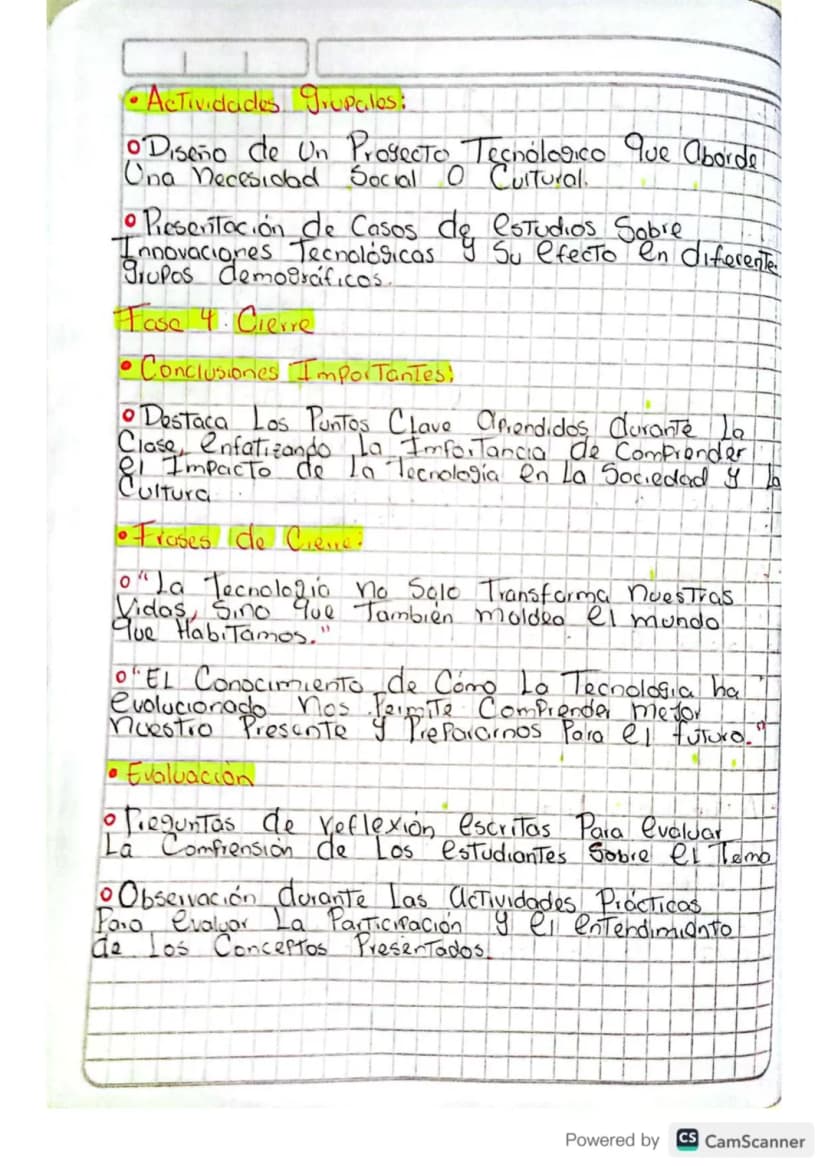 • Actividades grupales:
o Diseño de Un Proyecto Tecnólogico que aborde
Una necesidad Social O Cultural.
o Presentación de Casos de estudios Sobre
Innovaciones Tecnológicas y Su efecto en diferente
grupos demográficos.
Fase 4: Cierre
• Conclusiones Importantes:
o Destaca Los Puntos Clave aprendidos durante la
Clase, enfatizando la Importancia de Comprender
el Impacto de la Tecnología en La Sociedad y la
Cultura
• Frases de Cierre:
o "La Tecnologia no Solo Transforma nuestras
Vidas, Sino que También moldea el mundo
que Habitamos."
o "EL Conocimiento de Cómo La Tecnologia ha
evolucionado nos Permite Comprender mejor
nuestro Presente y Prepararnos Para el futuro."
• Evaluación
o Preguntas de reflexión escritas Para evaluar
La Comprensión de Los estudiantes Sobre el Tema
o Observación durante las actividades Prácticas
Para evaluar La Participación y el entendimiento
de Los Conceptos Presentados.
Powered by CS CamScanner